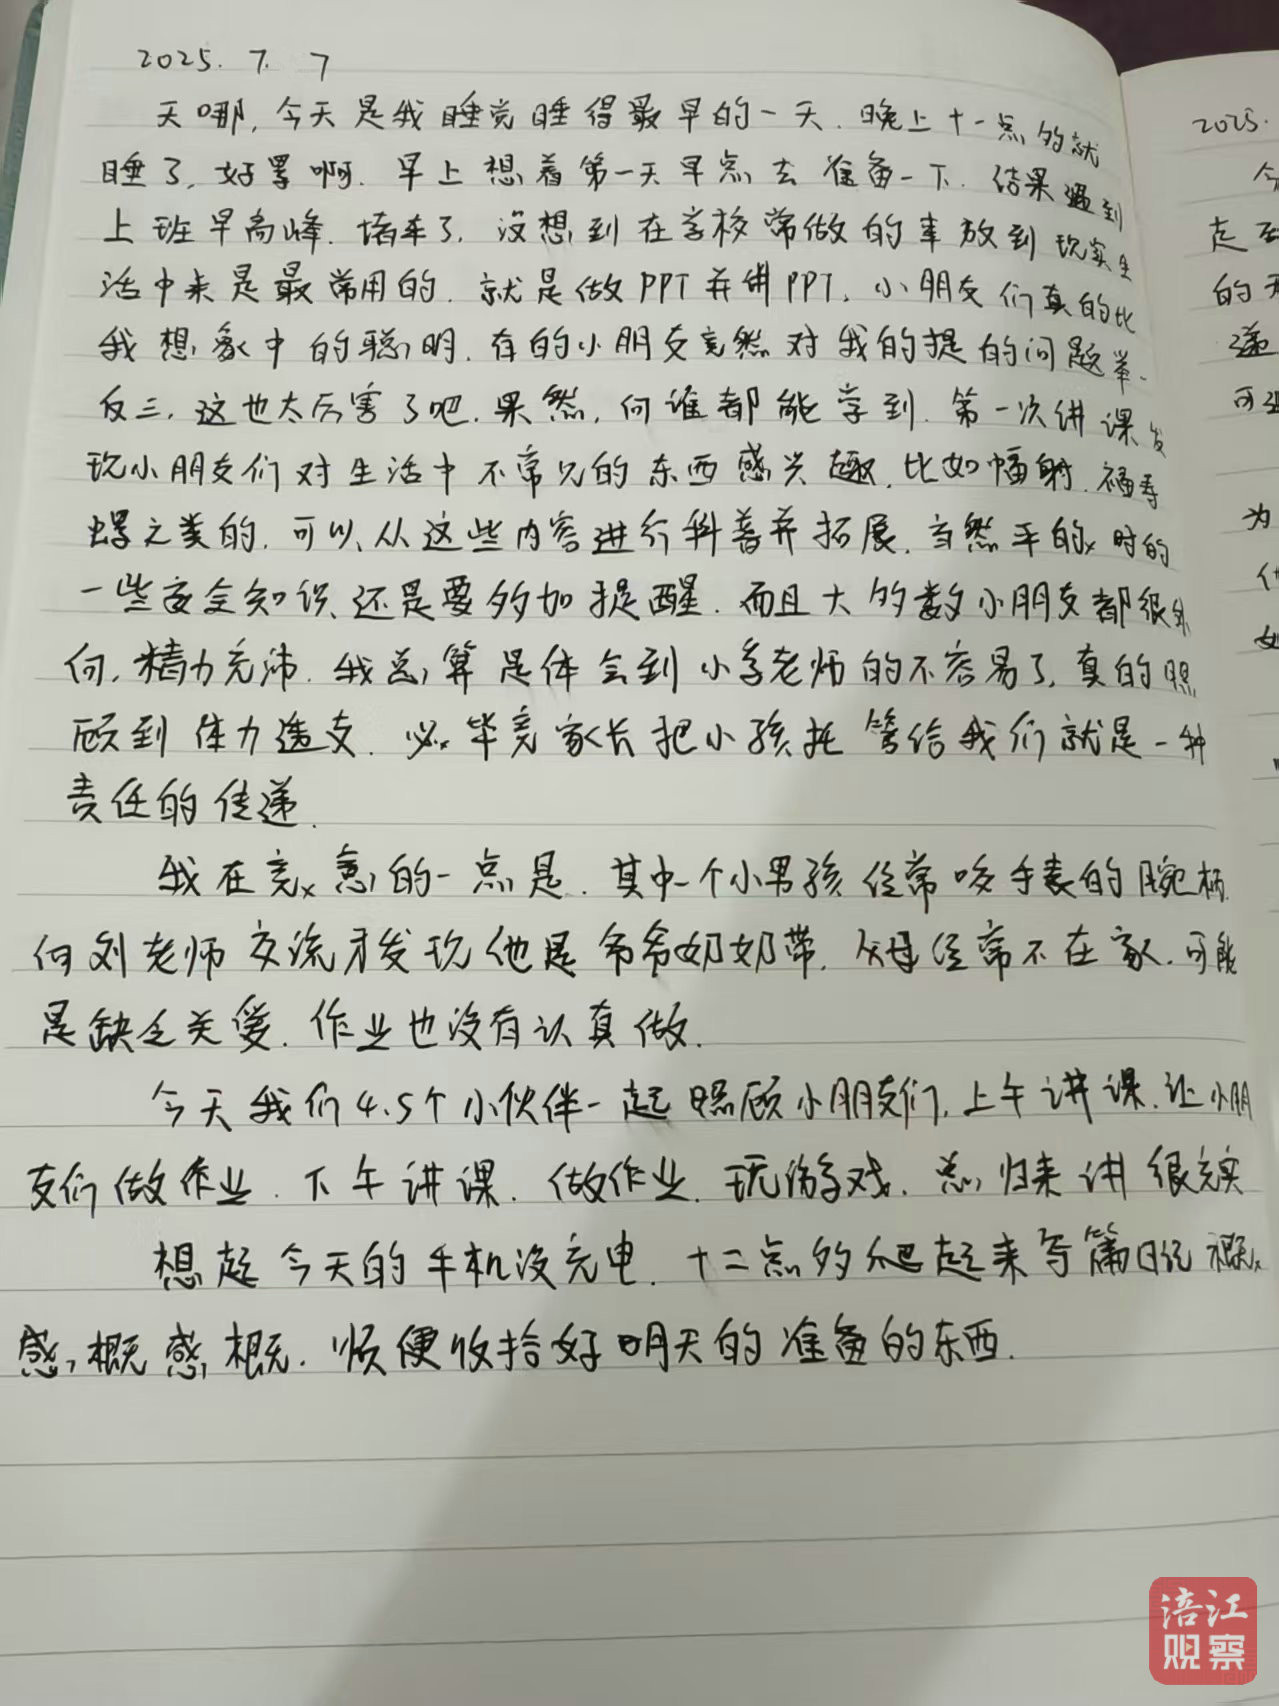 2025. 7. 7
天哪，今天是我睡觉睡得最早的一天. 晚上十一点多就
睡了, 好累啊. 早上想着第一天早点去准备一下. 结果遇到
上班早高峰. 堵车了. 没想到在学校常做的事放到现实生
活中来是最常用的. 就是做PPT并讲PPT. 小朋友们真的比
我想象中的聪明. 有的小朋友竟然对我的提的问题举一
反三, 这也太厉害了吧. 果然, 向谁都能学到. 第一次讲课发
现小朋友们对生活中不常见的东西感兴趣, 比如辐射. 福寿
螺之类的. 可以从这些内容进行科普并拓展. 当然平时的
一些安全知识, 还是要多加提醒. 而且大多数小朋友都很外
向, 精力充沛. 我总算是体会到小学老师的不容易了, 真的照
顾到体力透支. 毕竟家长把小孩托管给我们就是一种
责任的传递.
我在意的一点是. 其中一个小男孩经常咬手表的腕
向刘老师交流才发现他是爷爷奶奶带. 父母经常不在家. 可能
是缺乏关爱. 作业也没有认真做.
今天我们4.5个小伙伴一起照顾小朋友们, 上午讲课. 让小朋
友们做作业. 下午讲课. 做作业. 玩游戏. 总归来讲很充实
想起今天的手机没充电. 十二点多爬起来写篇日记
感概感概. 顺便收拾好明天的准备的东西.
2025.
今
走
的
递
可
为
女
涪江
观察